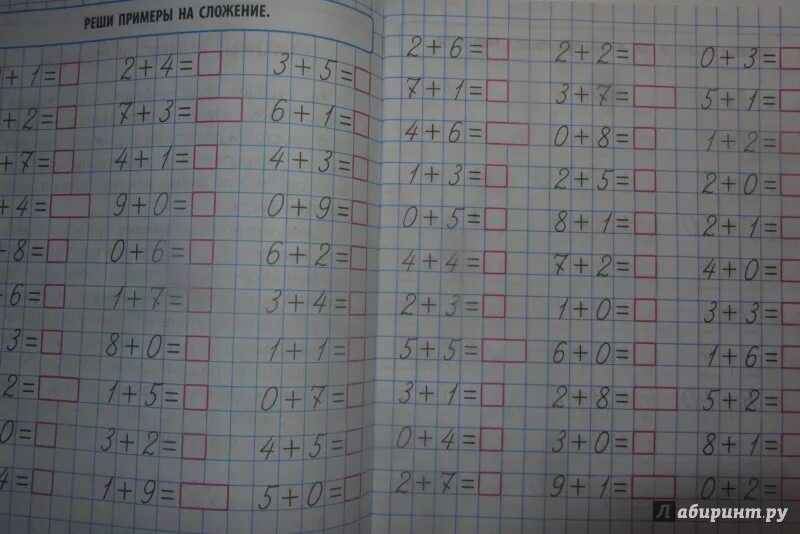 РЕШИ ПРИМЕРЫ НА СЛОЖЕНИЕ.
+ 1= 2+4= 3+5=
+ 2= 7+3= 6+1=
+ 7= 4+1= 4+3=
+ 4= 9+0= 0+9=
+ 8= 0+6= 6+2=
+ 6= 1+7= 3+4=
3= 8+0= 1+1=
2= 1+5= 0+7=
0= 3+2= 4+5=
4= 1+9= 5+0=
2+6= 2+2= 0+3=
7+1= 3+7= 5+1=
4+6= 0+8= 1+2=
1+3= 2+5= 2+0=
0+5= 8+1= 2+1=
4+4= 7+2= 4+0=
2+3= 1+0= 3+3=
5+5= 6+0= 1+6=
3+1= 2+8= 5+2=
0+4= 3+0= 8+1=
2+7= 9+1= 0+2=
Лабиринт.ру